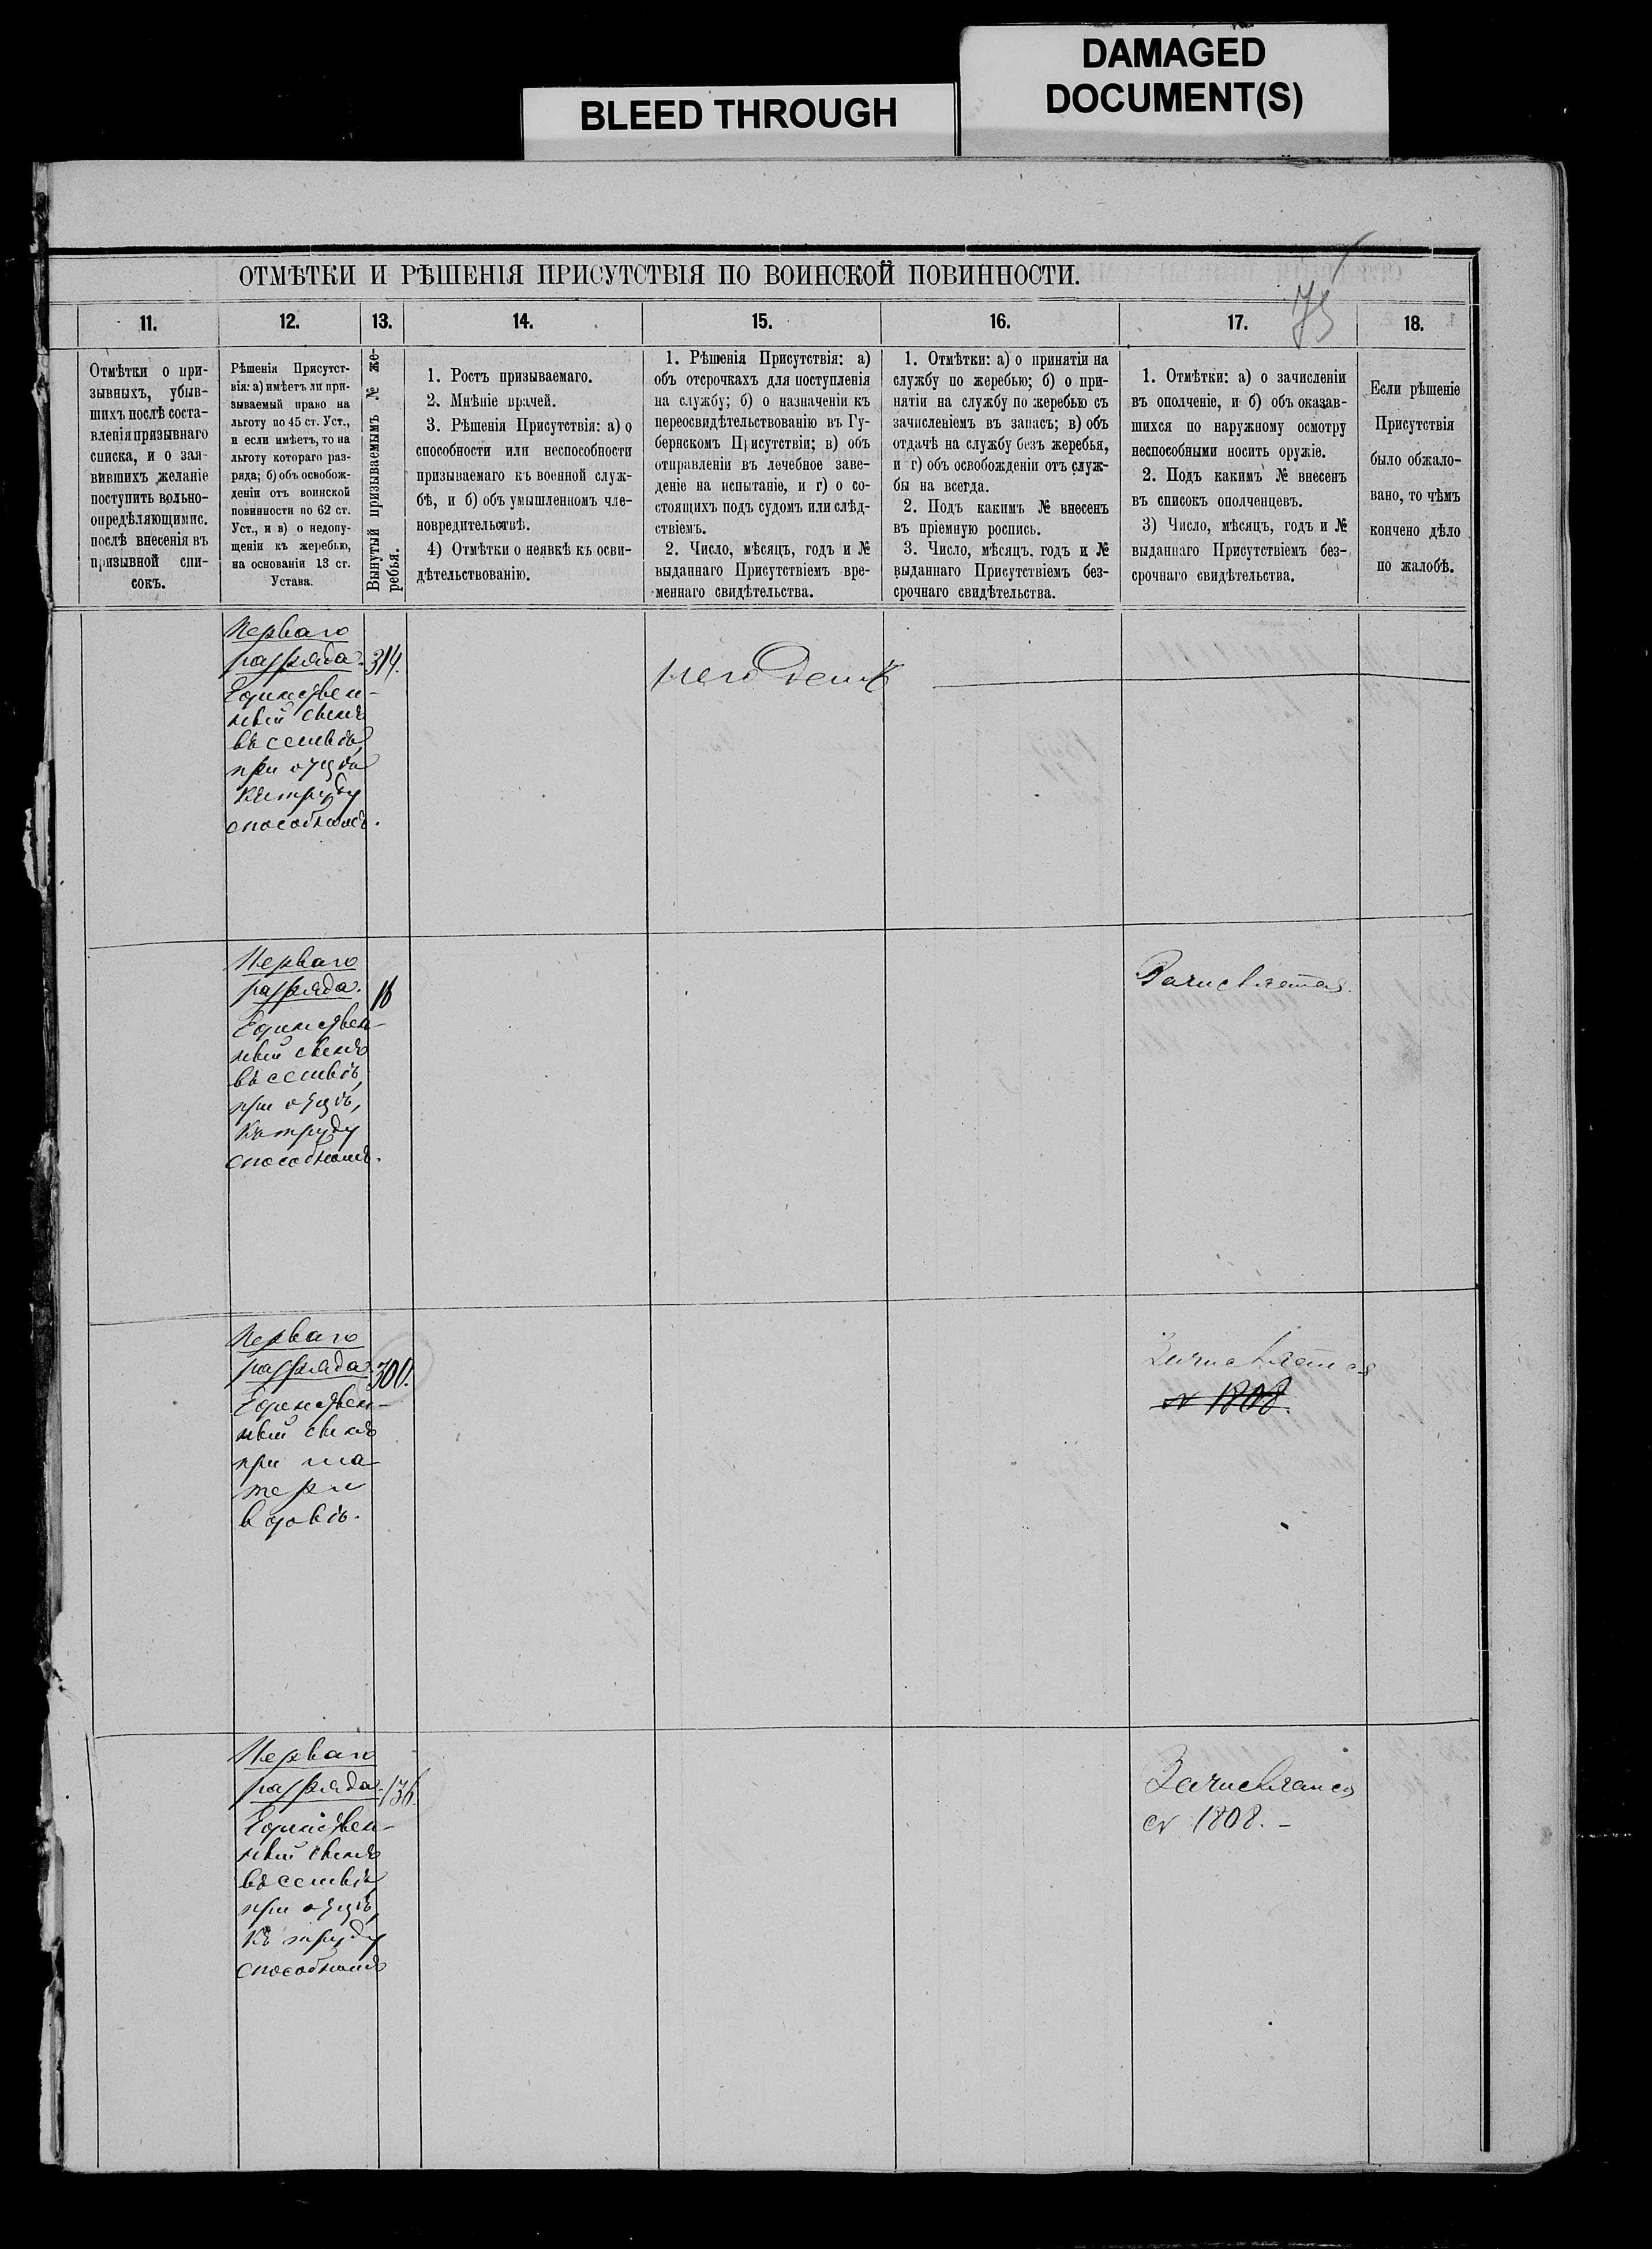 DAMAGED
DOCUMENT(S)
BLEED THROUGH
ОТМѢТКИ И РѢШЕНІЯ ПРИСУТСТВІЯ ПО ВОИНСКОЙ ПОВИННОСТИ.
75
11.
12.
13.
14.
15.
16.
17.
18.
Отмѣтки о при-
зывныхъ, убыв-
шихъ послѣ соста-
вленія призывнаго
списка, и о зая-
вившихъ желаніе
поступить вольно-
опредѣляющимис.
послѣ внесенія въ
призывной спи-
сокъ.
Рѣшенія Присутст-
вія: а) имѣетъ ли при-
зываемый право на
льготу по 45 ст. Уст.,
и если имѣетъ, то на
льготу котораго раз-
ряда; б) объ освобож-
деніи отъ воинской
повинности по 62 ст.
Уст., и в) о недопу-
щеніи къ жеребью,
на основаніи 13 ст.
Устава.
Вынутый призываемымъ № же-
ребья.
1. Ростъ призываемаго.
2. Мнѣніе врачей.
3. Рѣшенія Присутствія: а) о
способности или неспособности
призываемаго къ военной служ-
бѣ, и б) объ умышленномъ чле-
новредительствѣ.
4) Отмѣтки о неявкѣ къ осви-
дѣтельствованію.
1. Рѣшенія Присутствія: а)
объ отсрочкахъ для поступленія
на службу; б) о назначеніи къ
переосвидѣтельствованію въ Гу-
бернскомъ Присутствіи; в) объ
отправленіи въ лечебное заве-
деніе на испытаніе, и г) о со-
стоящихъ подъ судомъ или слѣд-
ствіемъ.
2. Число, мѣсяцъ, годъ и №
выданнаго Присутствіемъ вре-
меннаго свидѣтельства.
1. Отмѣтки: а) о принятіи на
службу по жеребью; б) о при-
нятіи на службу по жеребью съ
зачисленіемъ въ запасъ; в) объ
отдачѣ на службу безъ жеребья,
и г) объ освобожденіи отъ служ-
бы на всегда.
2. Подъ какимъ № внесенъ
въ пріемную роспись.
3. Число, мѣсяцъ, годъ и №
выданнаго Присутствіемъ без-
срочнаго свидѣтельства.
1. Отмѣтки: а) о зачисленіи
въ ополченіе, и б) объ оказав-
шихся по наружному осмотру
неспособными носить оружіе.
2. Подъ какимъ № внесенъ
въ списокъ ополченцевъ.
3) Число, мѣсяцъ, годъ и №
выданнаго Присутствіемъ без-
срочнаго свидѣтельства.
Если рѣшеніе
Присутствія
было обжало-
вано, то чѣмъ
кончено дѣло
по жалобѣ.
Перваго
разряда. 314.
Единствен-
ный сынъ
въ семьѣ,
при отцѣ
къ труду
способномъ.
Перваго
разряда. 16
Единствен-
ный сынъ
въ семьѣ,
при отцѣ,
къ труду
способномъ.
Зачисляется.
Перваго
разряда. 300.
Единствен-
ный сынъ
при ма-
тери
вдовѣ.
Зачисляется
1808.
Перваго
разряда. 136.
Единствен-
ный сынъ
въ семьѣ,
при отцѣ,
къ труду
способномъ
Зачисляется
1808. -